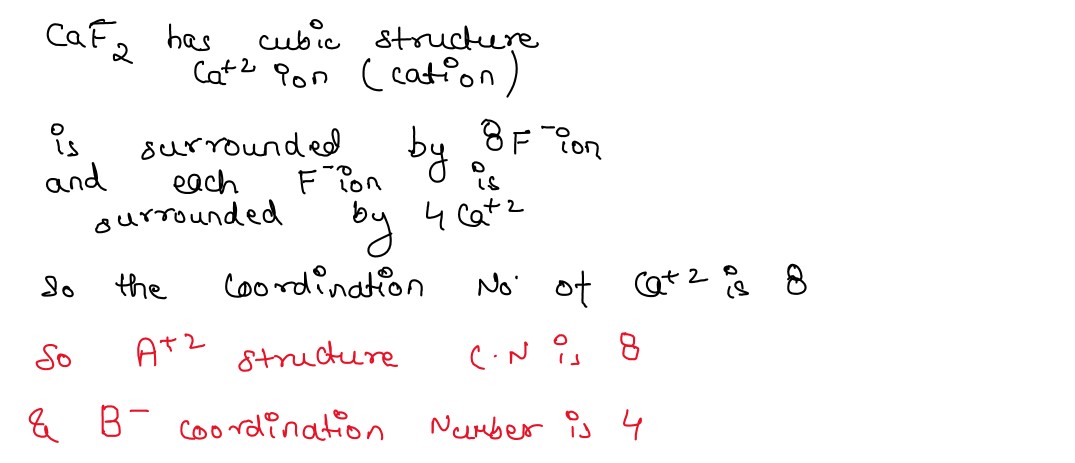 CaF2 has cubic structure
Ca+2 ion (cation)
is surrounded by 8F- ion
and each F- ion is
surrounded by 4 Ca+2
So the Coordination No. of Ca+2 is 8
So A+2 structure C.N is 8
& B- coordination Number is 4